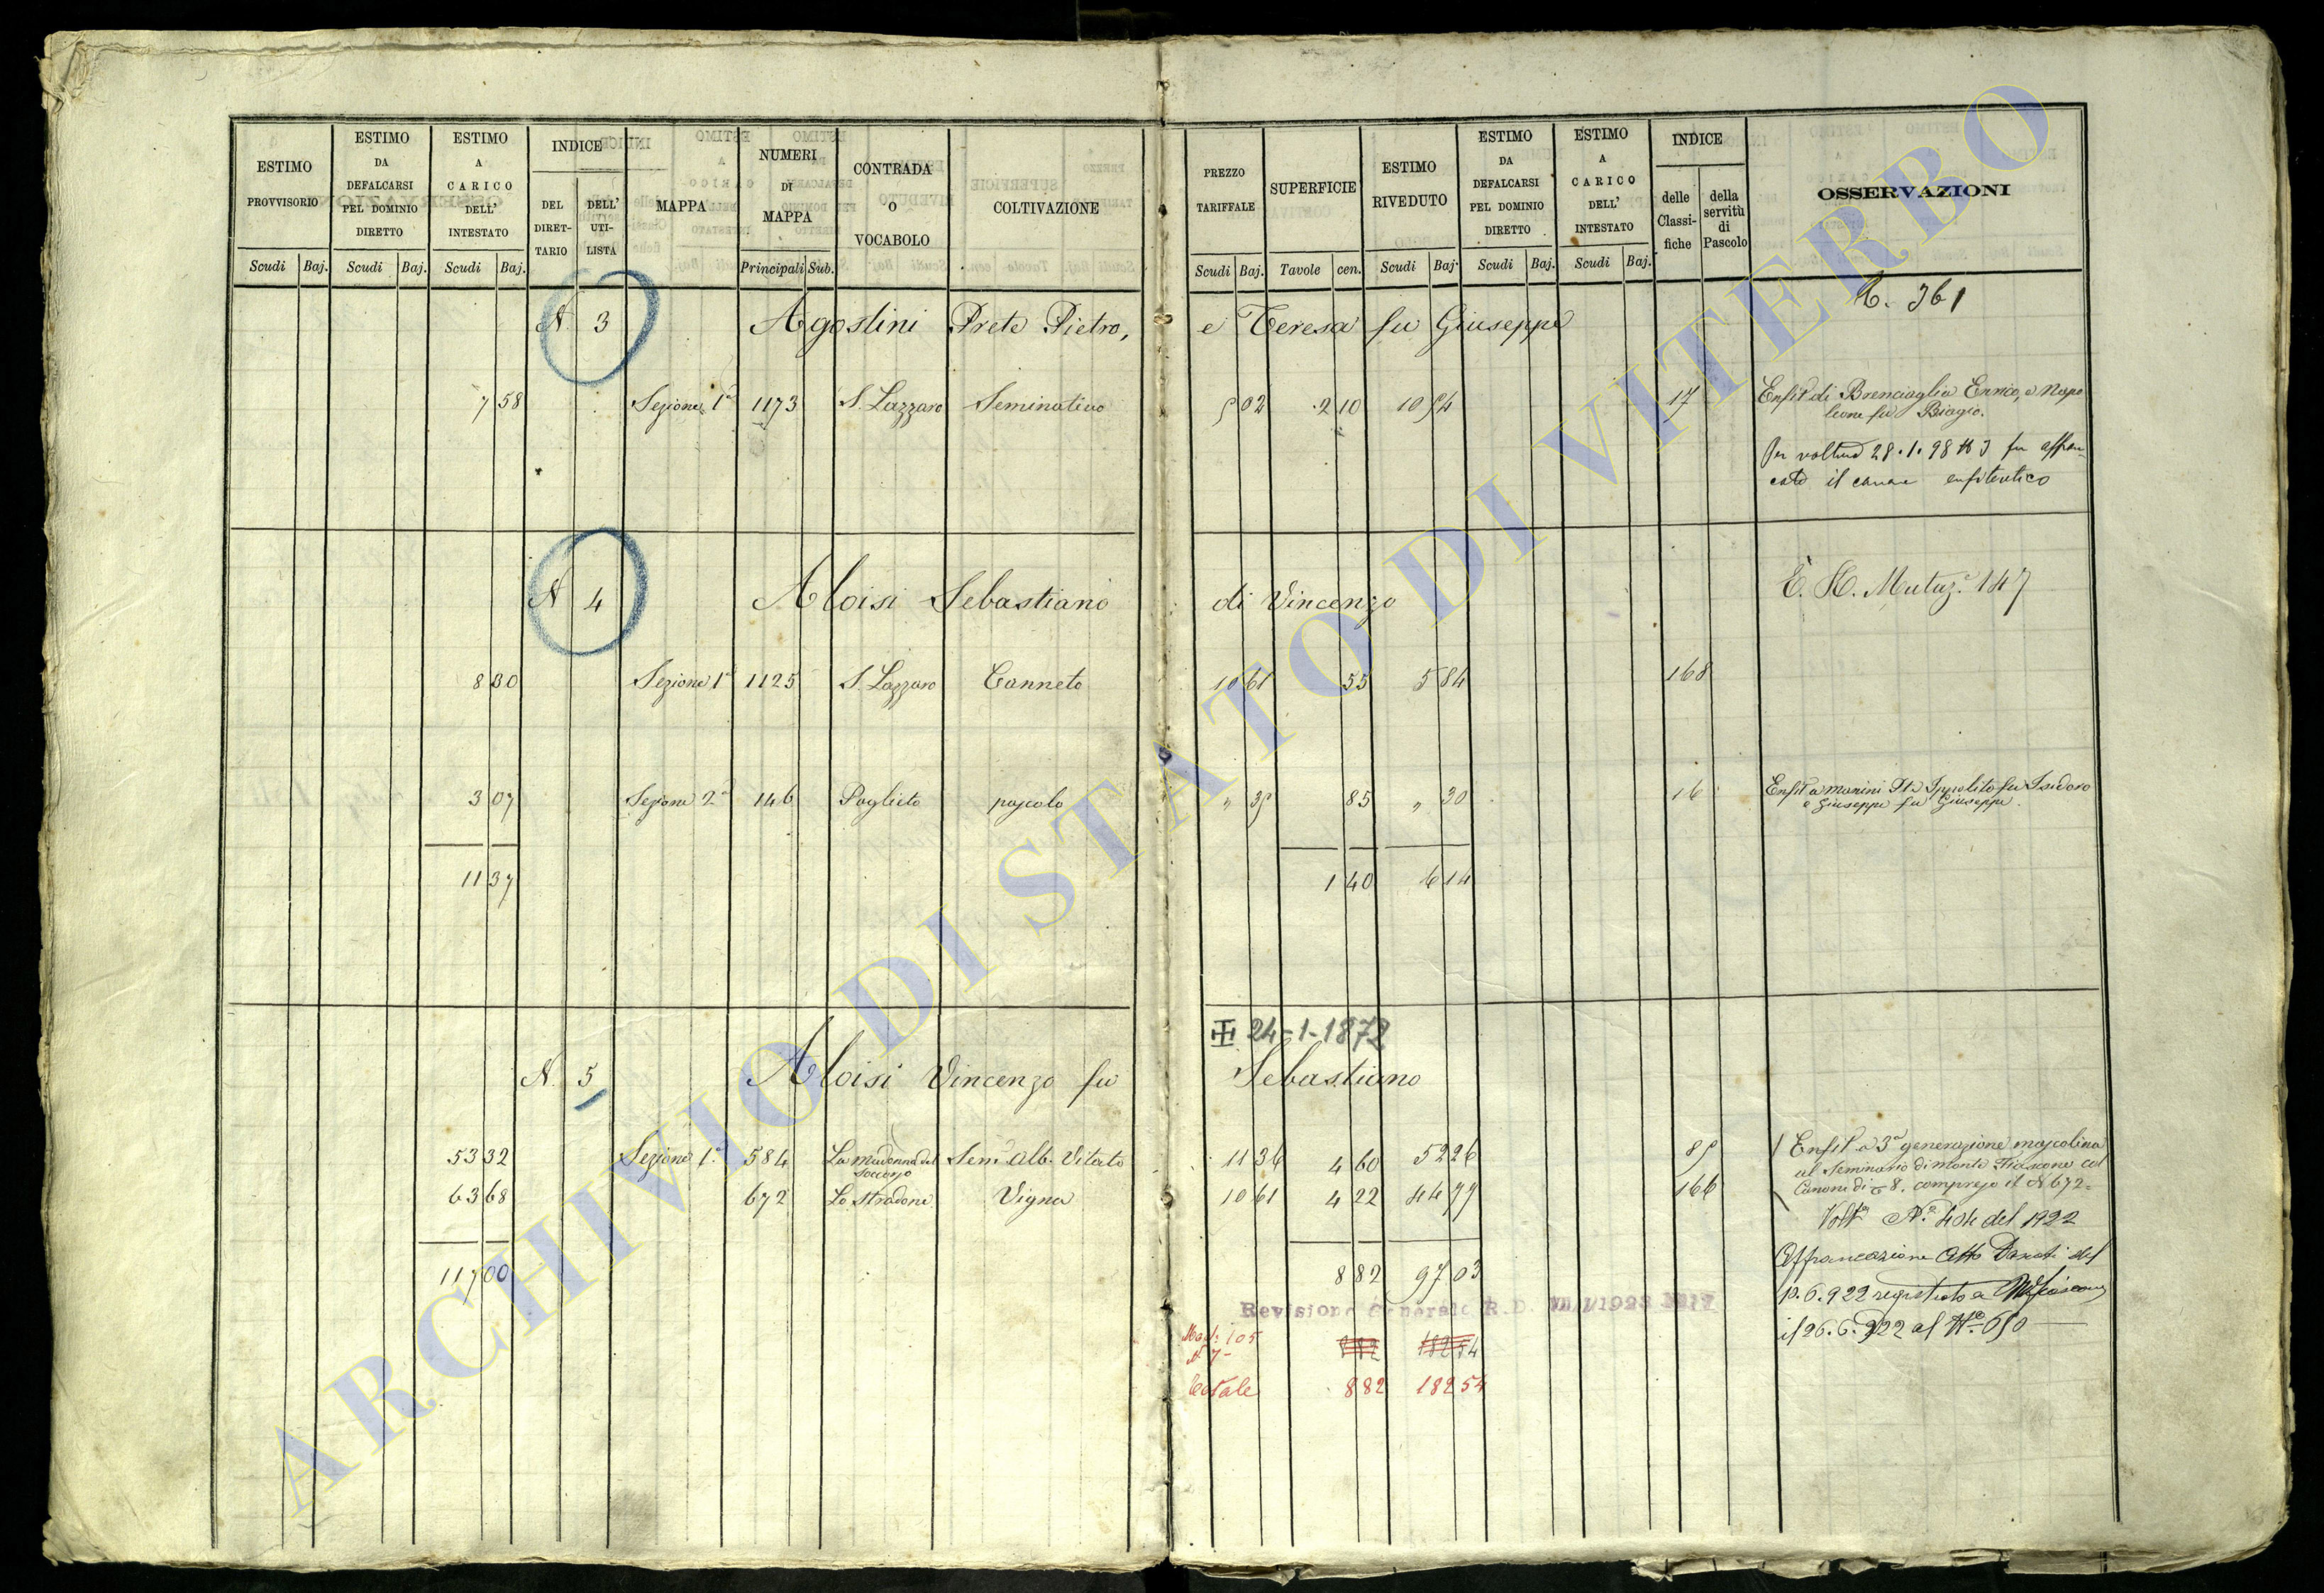 ESTIMO PROVVISORIO
Scudi Baj.
ESTIMO DA DEFALCARSI PEL DOMINIO DIRETTO
Scudi Baj.
ESTIMO A CARICO DELL' INTESTATO
Scudi Baj.
INDICE
DEL DIRET-TARIO
DELL' UTI-LISTA
MAPPA
NUMERI DI MAPPA
Principali Sub.
CONTRADA O VOCABOLO
COLTIVAZIONE
PREZZO TARIFFALE
Scudi Baj.
SUPERFICIE
Tavole cen.
ESTIMO RIVEDUTO
Scudi Baj.
ESTIMO DA DEFALCARSI PEL DOMINIO DIRETTO
Scudi Baj.
ESTIMO A CARICO DELL' INTESTATO
Scudi Baj.
INDICE
delle Classi-fiche
della servitù di Pascolo
OSSERVAZIONI
361
N 3 Agostini Prete Pietro, e Teresa fu Giuseppe
7 58 Sezione 1a 1173 S. Lazzaro Seminativo 5 02 2 10 10 54 17 Enfit di Brenciaglia Enrico, e Napo
leone fu Biagio.
28.1.98 N 3 fu affran-
cato il canone enfiteutico
N 4 Aloisi Sebastiano di Vincenzo
Mutaz. 147
8 30 Sezione 1a 1125 S. Lazzaro Canneto 10 61 55 5 84 168
3 07 Sezione 2a 146 Poglieto pascolo " 35 85 " 30 16 Enfit a Manini Ippolito fu Isidoro
e Giuseppe fu Giuseppe.
11 37 1 40 6 14
24-1-1872
N. 5 Aloisi Vincenzo fu Sebastiano
53 32 Sezione 1a 584 La Madonna del Soccorso Sem. Alb. Vitato 11 36 4 60 52 26 85 Enfit a 3a generazione mascolina
al Seminario di Monte Fiascone col
Canone di 8. compreso il N 672.
63 68 672 Lo Stradone Vigna 10 61 4 22 44 77 166
Volta No. 404 del 1922
117 00 8 82 97 03
Affrancazione Atto del
10.6.922 registrato a
il 26.6.922 al No. 650
Revisione Generale R.D. 1923
Mod. 105
N 7
Totale 8 82 182 54
ARCHIVIO DI STATO DI VITERBO